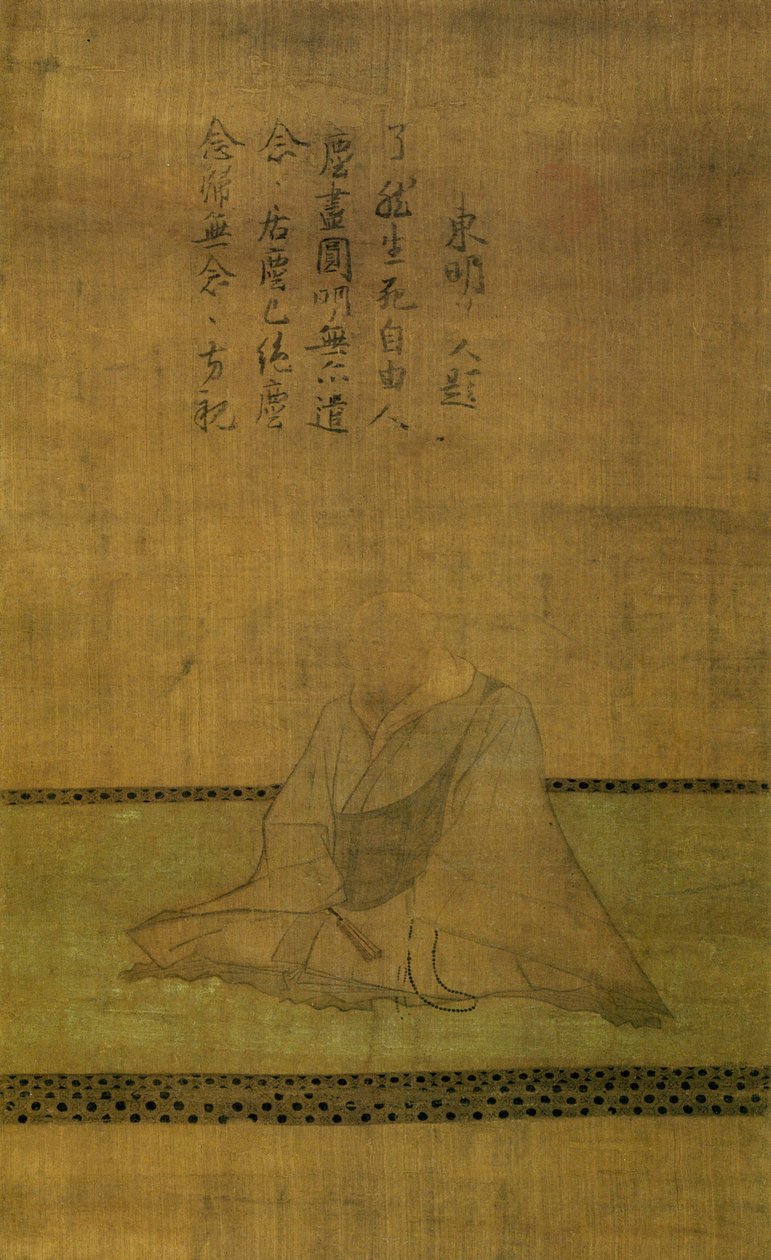 念歸無念々方親
念々居塵已絶塵
塵盡圓明無所遣
了然生死自由人
東明山人題